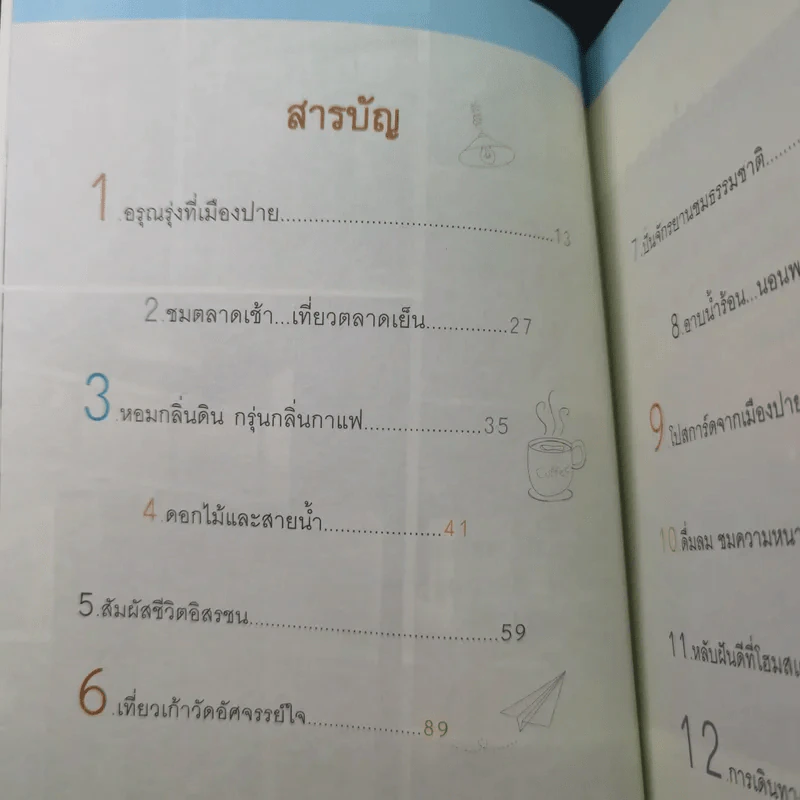 สารบัญ
1.อรุณรุ่งที่เมืองปาย..........................................13
2.ชมตลาดเช้า...เที่ยวตลาดเย็น...............27
3.หอมกลิ่นดิน กรุ่นกลิ่นกาแฟ.....................35
Coffee
4.ดอกไม้และสายน้ำ.....................41
5.สัมผัสชีวิตอิสรชน............................................59
6.เที่ยวเก้าวัดอัศจรรย์ใจ....................89
7.ปั่นจักรยานชมธรรมชาติ......
8.อาบน้ำร้อน...
9.โปสการ์ดจากเมืองปาย
10.ดื่มลม ชมความ
11.หลับฝันดีที่
12.การ